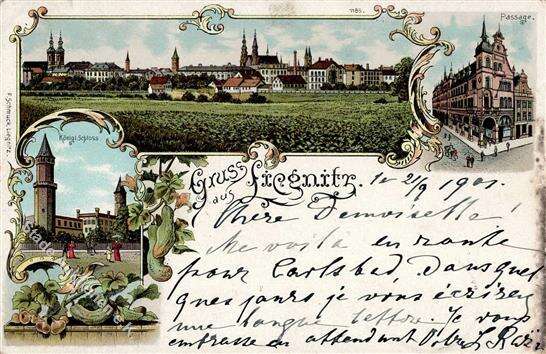 1185.
Passage.
F. Schmuck, Liegnitz.
Königl. Schloss
Gruss aus Liegnitz.
le 2/9 1901.
Chère Demoiselle!
Me voilà en route
pour Carlsbad, Dans quel
ques jours je vous écrirai
une longue lettre. Je vous
embrasse en attendant